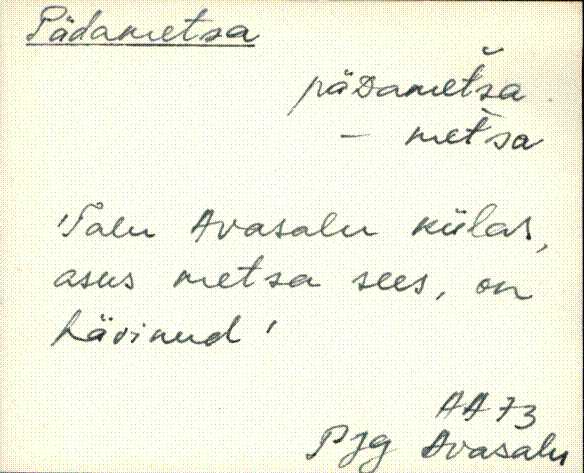 Pädametsa
päDametsa
— metsa
'Talu Avasalu külas,
asus metsa sees, on
hävinud'
AA 73
PJg Avasalu